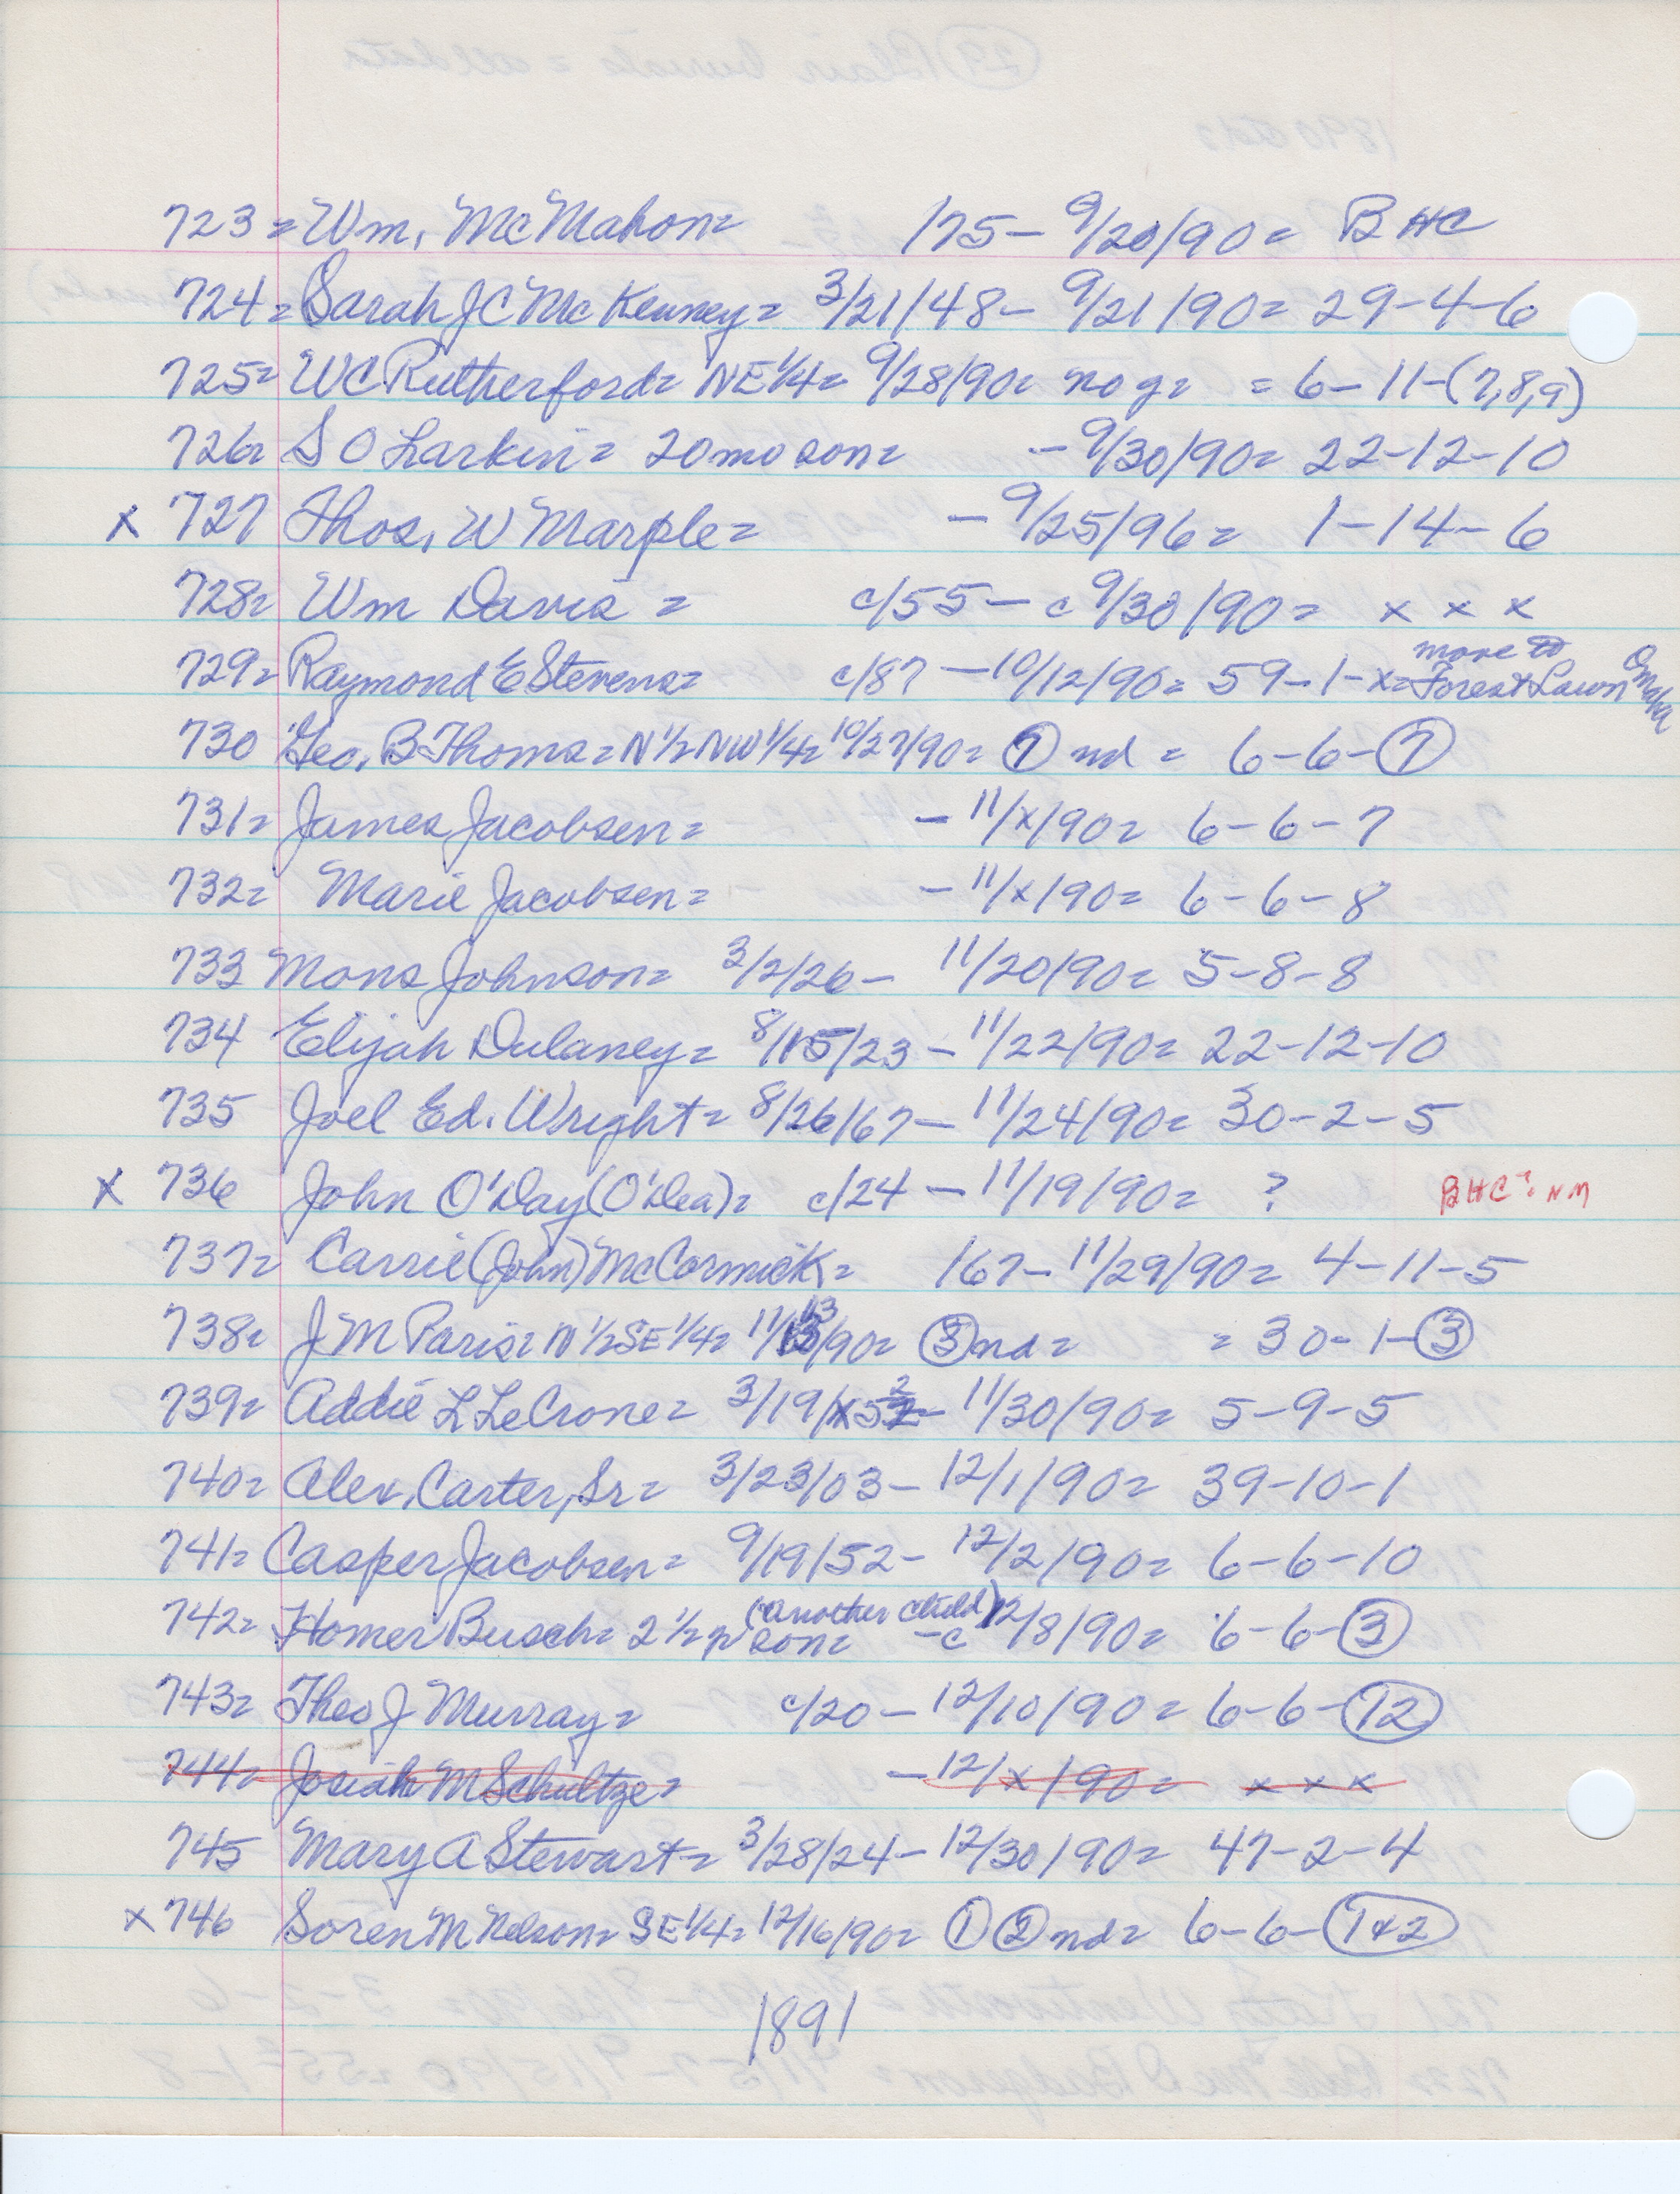 723= Wm. McMahon= /75- 9/20/90= BHC
724= Sarah J C McKenney= 3/21/48- 9/21/90= 29-4-6
725= WC Rutherford= NE 1/4= 9/28/90= no g= = 6-11-(7,8,9)
726= S O Larkin= 20 mo son= -9/30/90= 22-12-10
x 727 Thos. W Marple= -9/25/96= 1-14-6
728= Wm Davis = c/55- c 9/30/90= x x x
move to
729= Raymond E Stevens= c/87-10/12/90= 59-1-x= Forest Lawn Omaha
730 Geo. B Thoms= N 1/2 NW 1/4= 10/27/90= 7 nd = 6-6-7
731= James Jacobsen= -11/x/90= 6-6-7
732= Marie Jacobsen= -11/x/90= 6-6-8
733 Mons Johnson= 3/2/26- 11/20/90= 5-8-8
734 Elijah Dulaney= 8/15/23-11/22/90= 22-12-10
735 Joel Ed. Wright= 8/26/67-11/24/90= 30-2-5
x 736 John O'Day (O'Dea)= c/24-11/19/90= ? BHC? NM
737= Carrie (John) McCormick= /67-11/29/90= 4-11-5
738= J M Paris= N 1/2 SE 1/4= 11/13/90= 3 nd= = 30-1-3
739= Addie L LeCrone= 3/19/52-11/30/90= 5-9-5
740= Alex. Carter, Sr= 3/23/03-12/1/90= 39-10-1
741= Casper Jacobsen= 9/19/52-12/2/90= 6-6-10
(another child)
742= Homer Busch= 2 1/2 y son= -c 12/8/90= 6-6-3
743= Theo J Murray= c/20-12/10/90= 6-6-12
744= Josiah M Schultze= -12/x/90= x x x
745 Mary A Stewart= 3/28/24-12/30/90= 47-2-4
x 746 Soren M Nelson= SE 1/4= 12/16/90= 1 2 nd= 6-6-1&2
1891